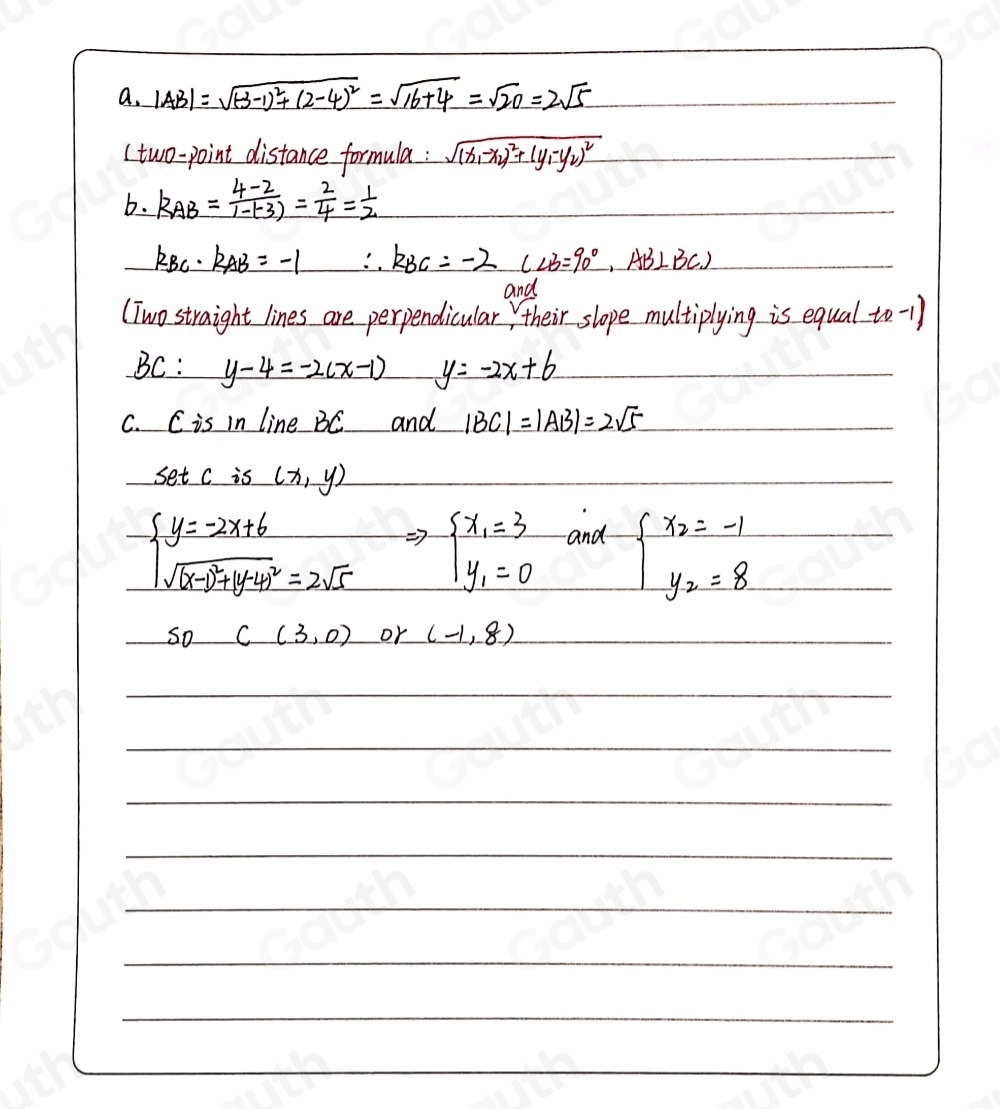 a. |AB| = √(-3-1)²+(2-4)² = √16+4 = √20 = 2√5
(two-point distance formula: √(x₁-x₂)²+(y₁-y₂)²
b. kAB = 4-2/1-(-3) = 2/4 = 1/2
kBC · kAB = -1 ∴ kBC = -2 (∠B=90°, AB⊥BC)
(Two straight lines are perpendicular, and their slope multiplying is equal to -1)
BC: y-4=-2(x-1) y=-2x+6
c. C is in line BC and |BC|=|AB|=2√5
set C is (x, y)
{y=-2x+6 ⇒ {x₁=3 and {x₂=-1
√(x-1)²+(y-4)² = 2√5 y₁=0 y₂=8
so C (3,0) or (-1,8)
Gauth